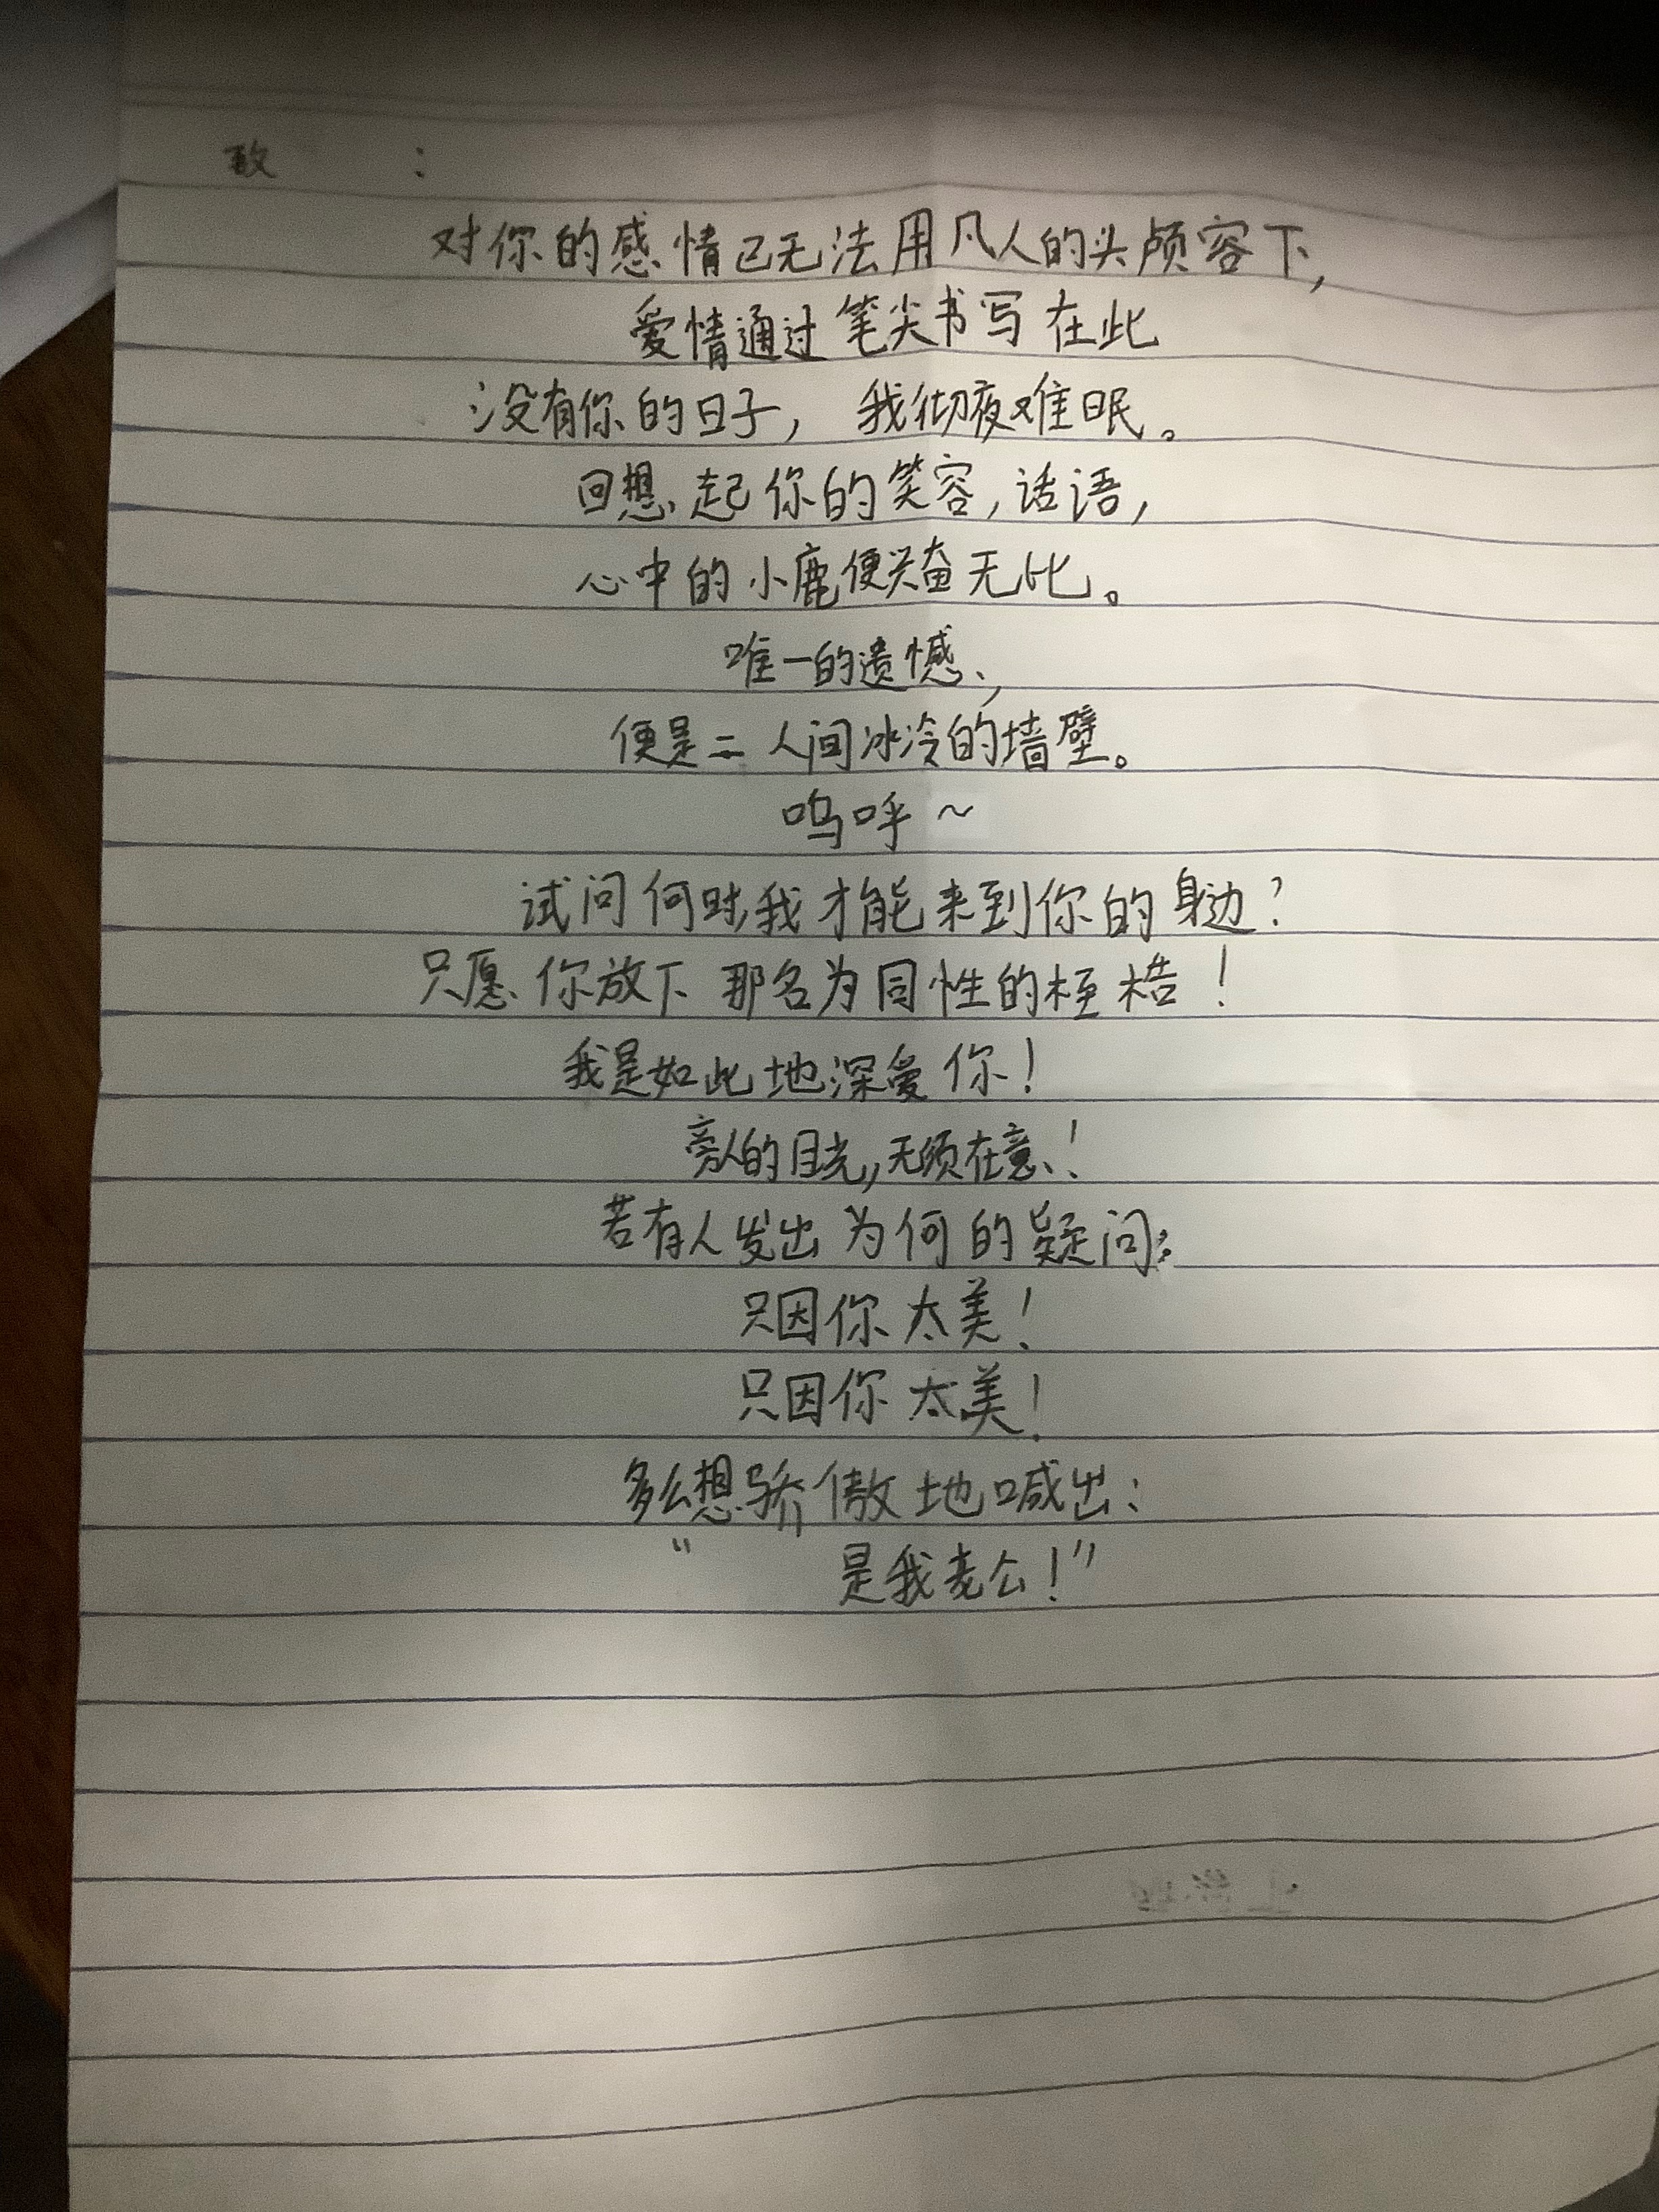 致　　：
对你的感情已无法用凡人的头颅容下，
爱情通过笔尖书写在此
没有你的日子，我彻夜难眠。
回想起你的笑容，话语，
心中的小鹿便兴奋无比。
唯一的遗憾，
便是二人间冰冷的墙壁。
呜呼～
试问何时我才能来到你的身边？
只愿你放下那名为同性的桎梏！
我是如此地深爱你！
旁人的目光，无须在意！
若有人发出为何的疑问：
只因你太美！
只因你太美！
多么想骄傲地喊出：
“　　是我老公！”